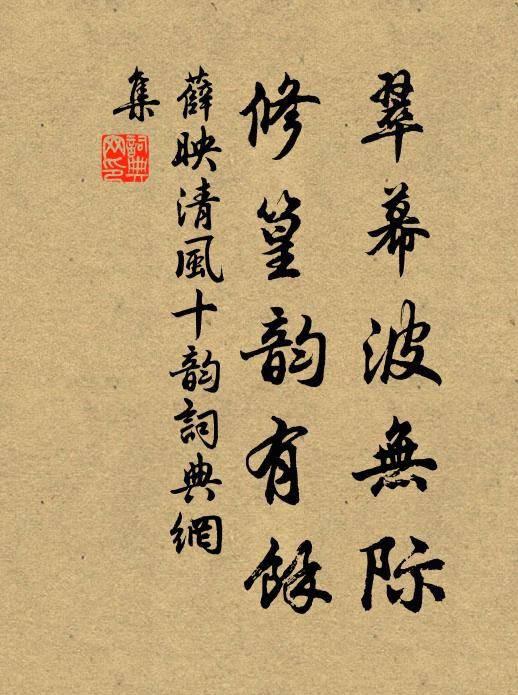 翠幕波無际
修篁韵有餘
薛映清風十韵詞典網
集
詞典网印